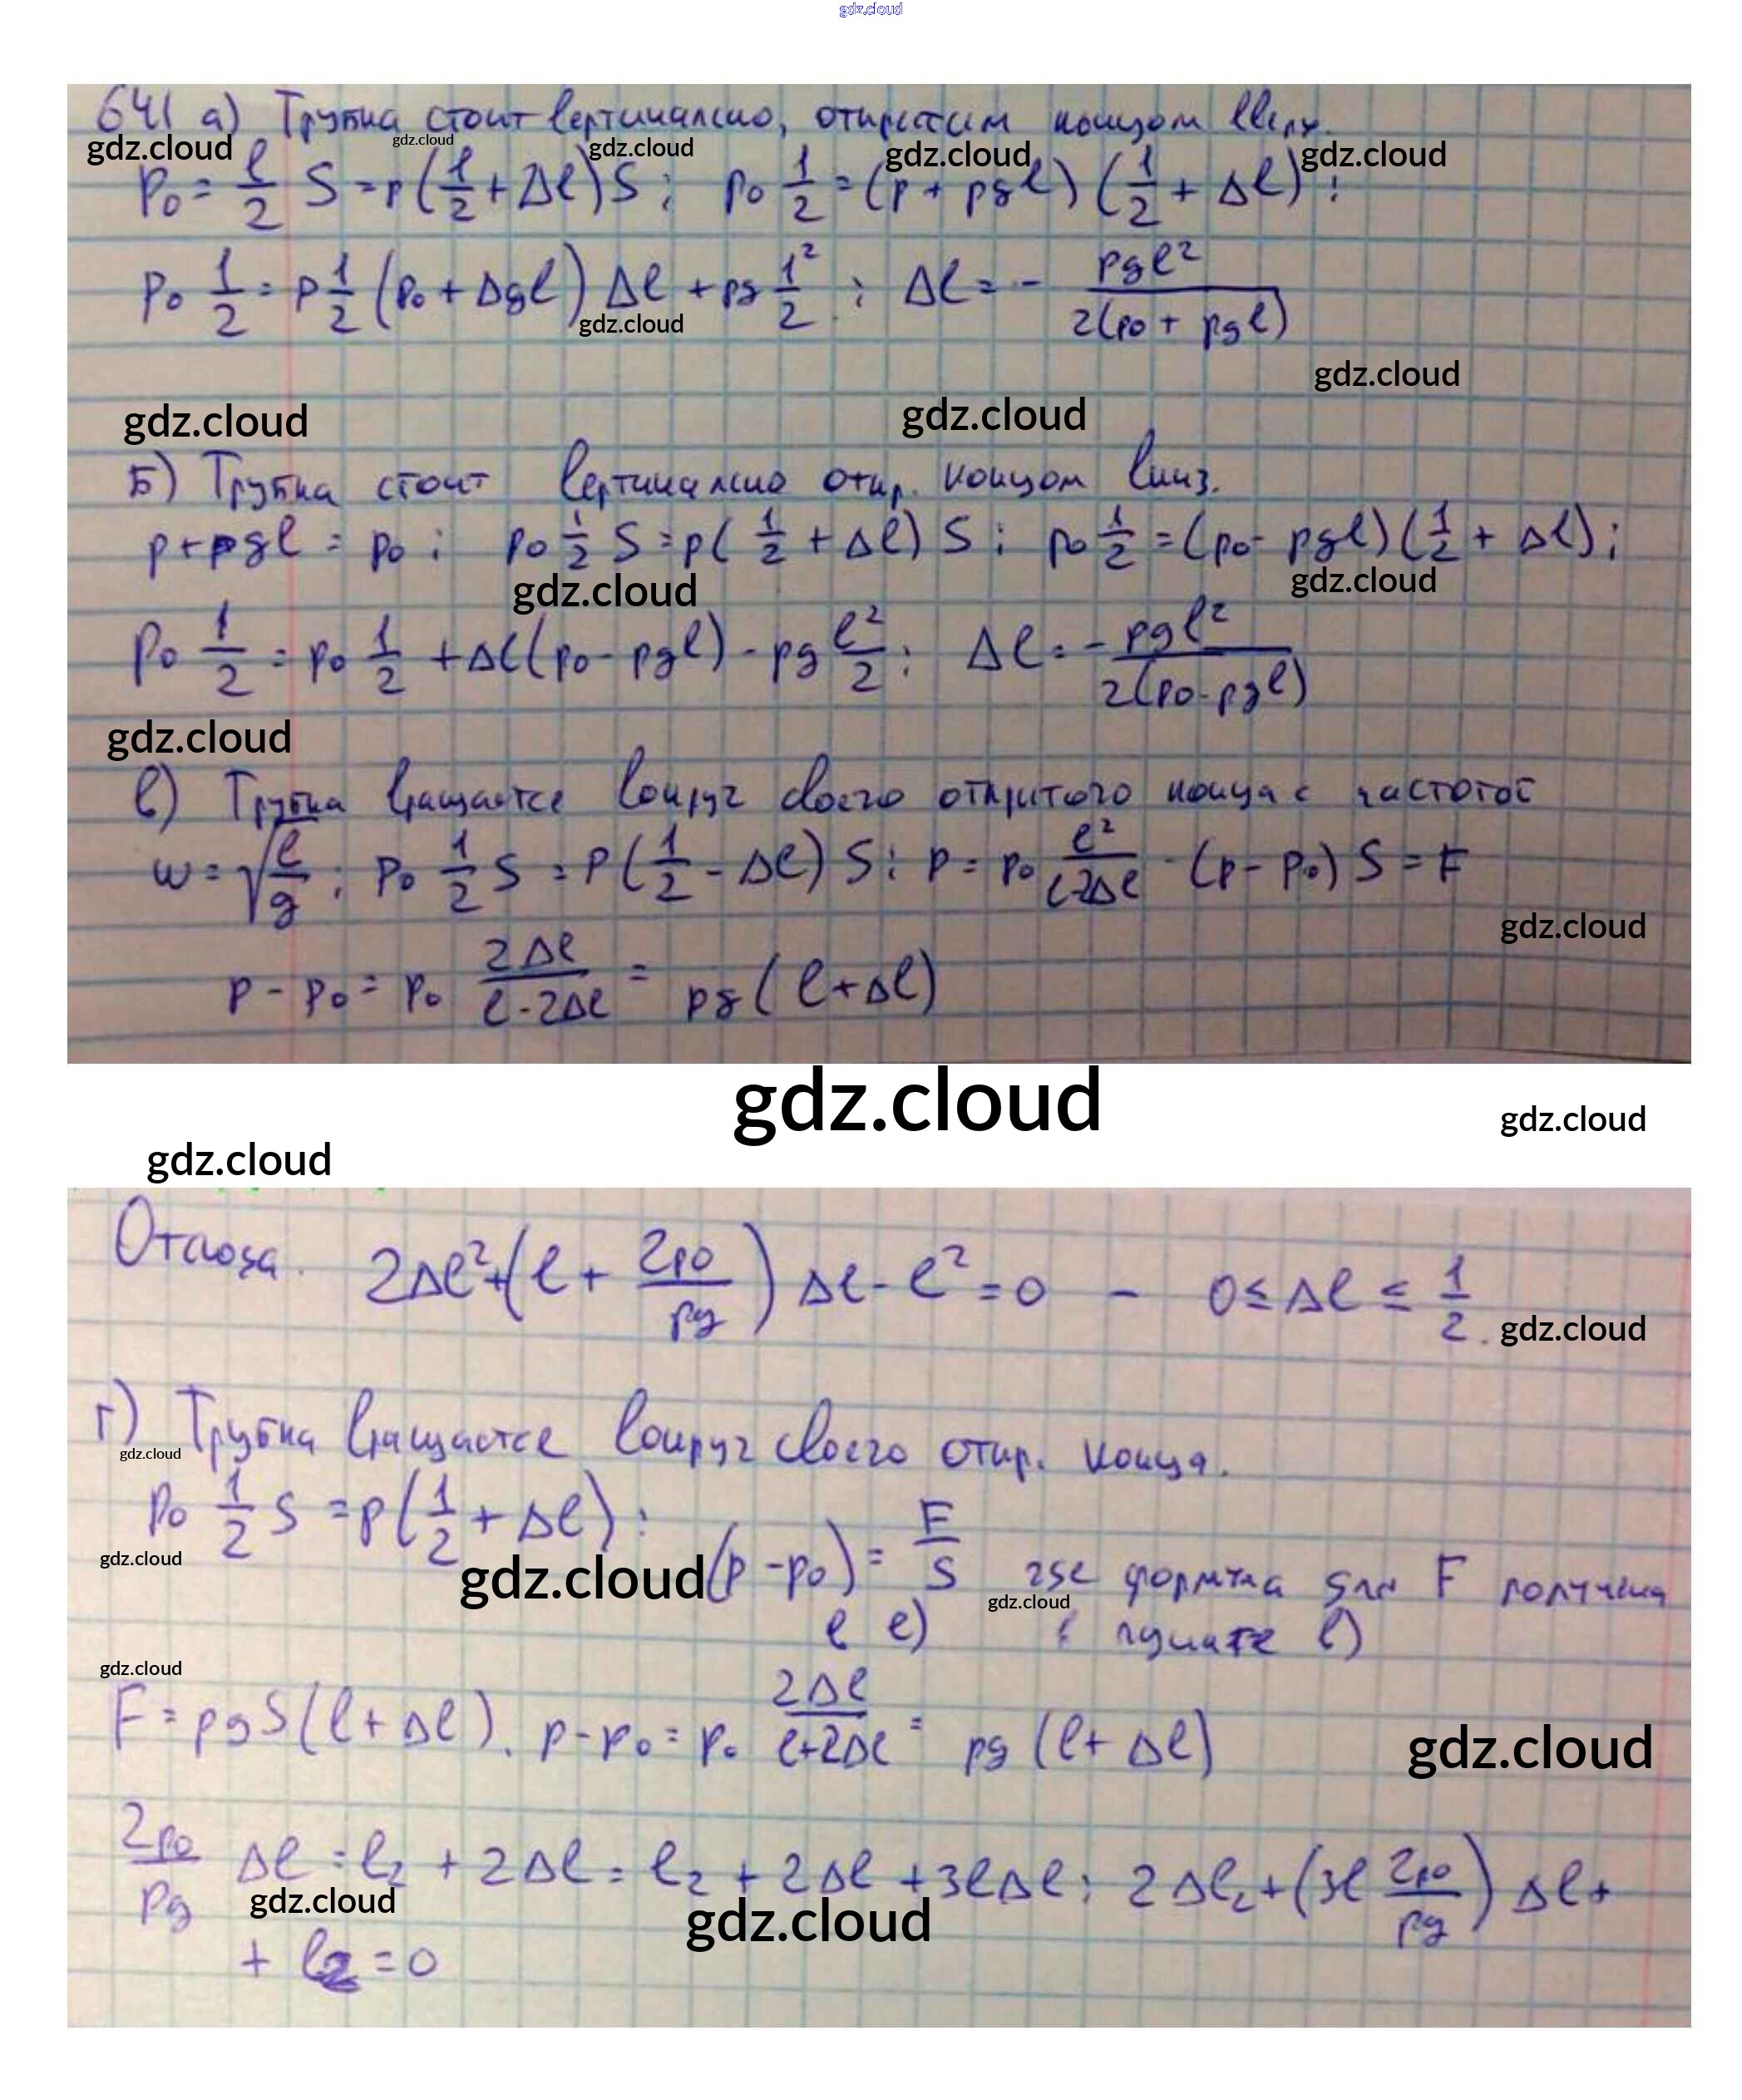 gdz.cloud
641 а) Трубка стоит вертикально, открытым концом вверх.
gdz.cloud gdz.cloud gdz.cloud gdz.cloud gdz.cloud
p₀ = l/2 S = p(1/2 + Δl)S ; p₀ 1/2 = (p + pgl)(1/2 + Δl) ;
p₀ 1/2 = p 1/2 (p₀ + Δgl) Δl + pg 1²/2 ; Δl = - pgl²/2(p₀ + pgl)
gdz.cloud
gdz.cloud
gdz.cloud gdz.cloud
Б) Трубка стоит вертикально откр. концом вниз.
p + pgl = p₀ ; p₀ 1/2 S = p(1/2 + Δl) S ; p₀ 1/2 = (p₀ - pgl)(1/2 + Δl) ;
gdz.cloud gdz.cloud
p₀ 1/2 = p₀ 1/2 + Δl(p₀ - pgl) - pg l²/2 ; Δl = - pgl²/2(p₀ - pgl)
gdz.cloud
в) Трубка вращается вокруг своего открытого конца с частотой
w = √l/g ; p₀ 1/2 S = P(1/2 - Δl) S ; p = p₀ l²/l-2Δl - (p - p₀) S = F
gdz.cloud
p - p₀ = p₀ 2Δl/l-2Δl = pg(l + Δl)
gdz.cloud
gdz.cloud
gdz.cloud
Отсюда. 2Δl² + (l + 2p₀/pg) Δl - l² = 0 - 0 ≤ Δl ≤ 1/2.
gdz.cloud
г) Трубка вращается вокруг своего откр. конца.
gdz.cloud
p₀ 1/2 S = p(1/2 + Δl) ; (p - p₀) = F/S где формула для F получена
gdz.cloud gdz.cloud gdz.cloud
е е) в пункте в)
gdz.cloud
F = pgS(l + Δl). p - p₀ = p₀ 2Δl/l+2Δl = pg(l + Δl)
gdz.cloud
2p₀/pg Δl = l₂ + 2Δl = l₂ + 2Δl + 3lΔl ; 2Δl₂ + (3l 2p₀/pg) Δl +
gdz.cloud gdz.cloud
+ l₂ = 0